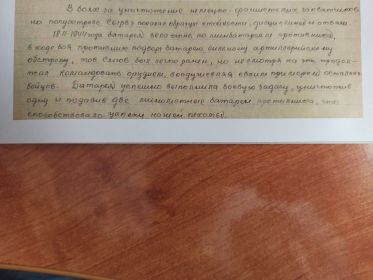 В боях за уничтожение немецко-фашистских захватчиков
на полуострове Сырве показал образцы стойкости, дисциплины и отваги.
18.11.1944 года батарея вела огонь по минбатареям противника,
в ходе боя противник подверг батарею сильному артиллерийскому
обстрелу, тов. был легко ранен, но несмотря на это продол-
жал командовать орудием, воодушевляя своим примером остальных
бойцов. Батарея успешно выполнила боевую задачу, уничтожив
одну и подавив две минометные батареи противника, что
способствовало успеху нашей пехоты.